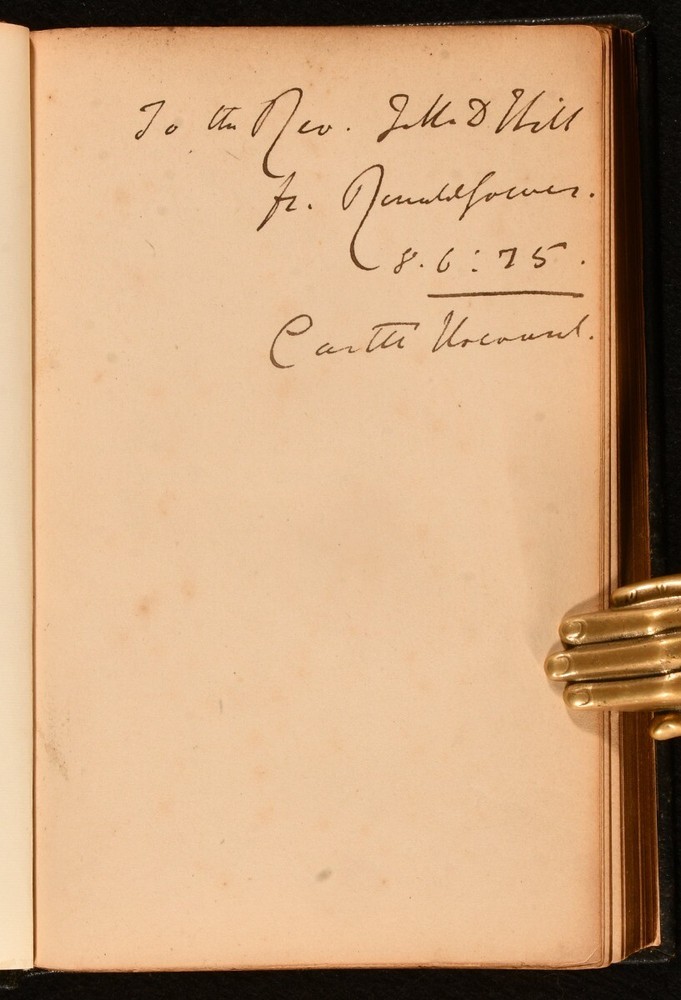 To the Rev. D Hill
fr. Ronald Gower.
8.6:75.
Castle Howard.